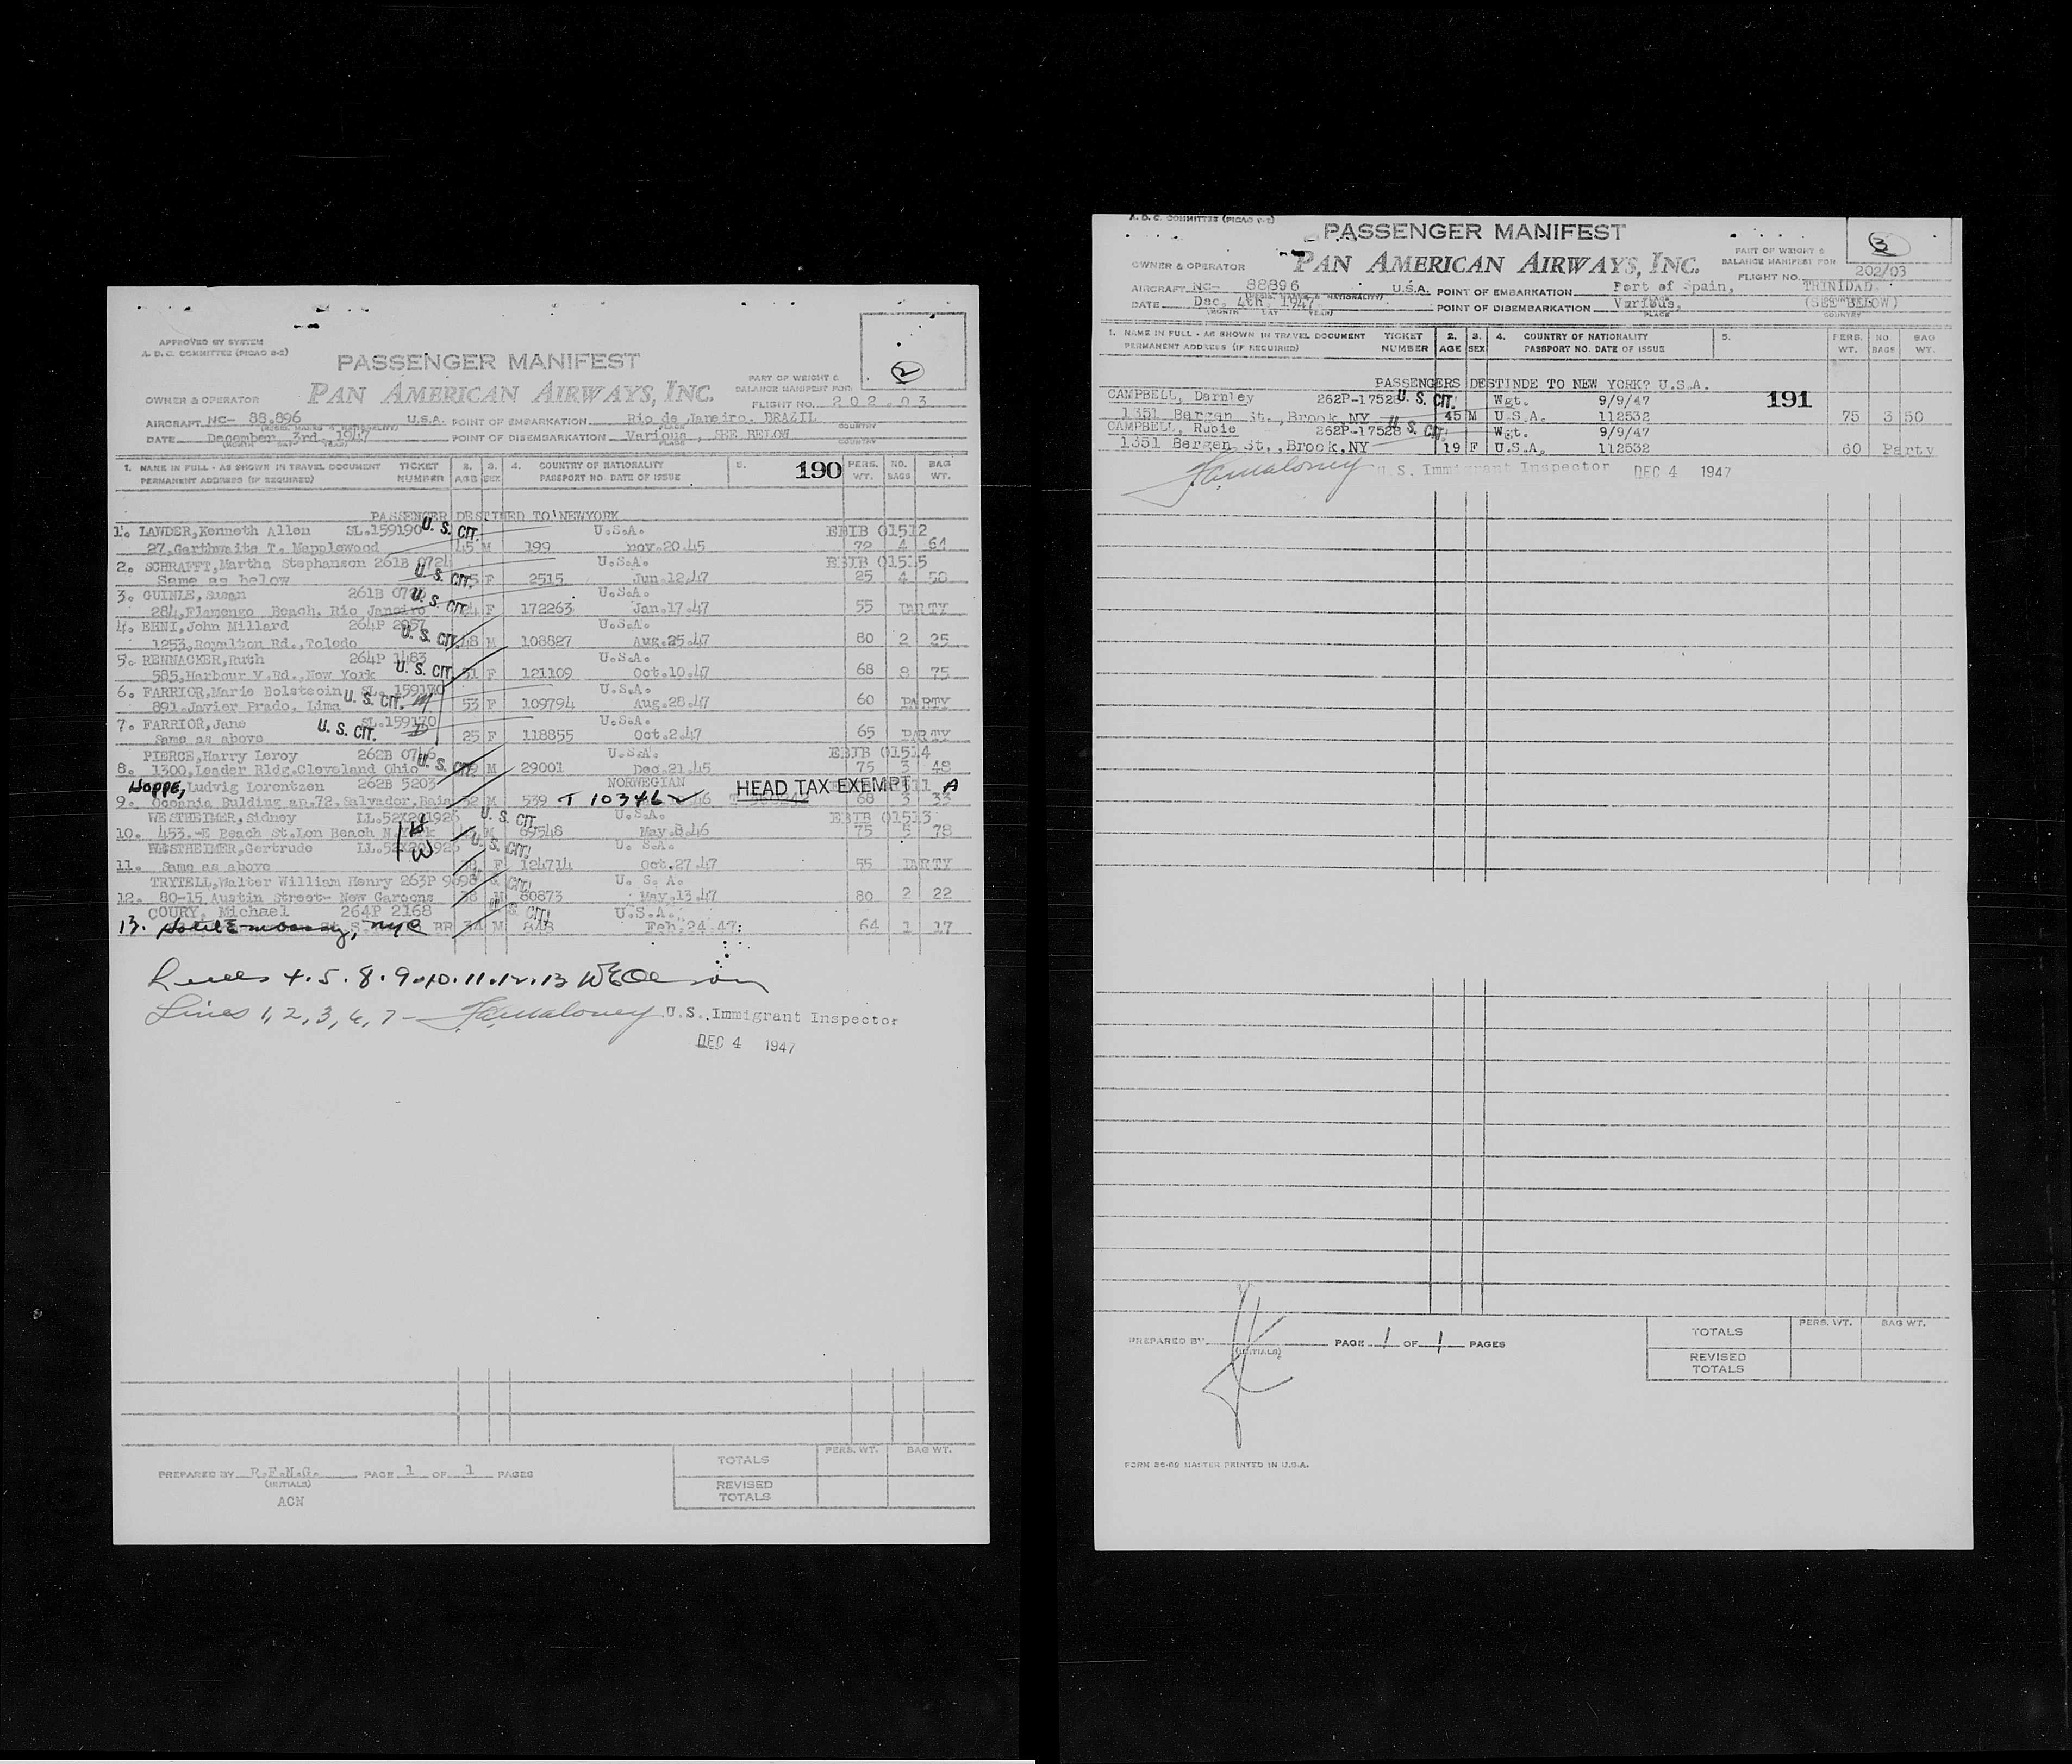 APPROVED BY SYSTEM
A. D. C. COMMITTEE (PICAO 8-2)
2
PASSENGER MANIFEST
PAN AMERICAN AIRWAYS, INC.
PART OF WEIGHT &
BALANCE MANIFEST FOR
FLIGHT NO. 202.03
OWNER & OPERATOR
AIRCRAFT NC- 88.896 U.S.A. POINT OF EMBARKATION Rio de Janeiro. BRAZIL
DATE December 3rd, 1947 POINT OF DISEMBARKATION Various, SEE BELOW
(MONTH DAY YEAR) PLACE COUNTRY
1. NAME IN FULL - AS SHOWN IN TRAVEL DOCUMENT TICKET 2. 3. 4. COUNTRY OF NATIONALITY 5. 190 PERS. NO. BAG
PERMANENT ADDRESS (IF REQUIRED) NUMBER AGE SEX PASSPORT NO. DATE OF ISSUE WT. BAGS WT.
PASSENGER DESTINED TO NEWYORK
1. LAWDER,Kenneth Allen SL.159190 U. S. CIT. U.S.A. EBIB 01512
27,Garthwaite T. Mapplewood 45 M 199 nov.20.45 72 4 64
2. SCHRAFFT,Martha Stephanson 261B 0724 U. S. CIT. U.S.A. EBIB 01515
Same as below F 2515 Jun.12.47 25 4 58
3. GUINLE, Susan 261B U. S. CIT. U.S.A.
284,Flamengo Beach, Rio Janeiro F 172263 Jan.17.47 55 PARTY
4. EHNI,John Millard 264P 2057 U. S. CIT. U.S.A.
1253,Royalton Rd.,Toledo 48 M 108827 Aug.25.47 80 2 25
5. RENNACKER,Ruth 264P 1483 U. S. CIT. U.S.A.
585,Harbour V.Rd.,New York 51 F 121109 Oct.10.47 68 8 75
6. FARRIOR,Marie Bolstecin SL. 159170 U. S. CIT. U.S.A.
891.Javier Prado. Lima 53 F 109794 Aug.28.47 60 PARTY
7. FARRIOR,Jane SL.159170 U. S. CIT. U.S.A.
Same as above 25 F 118855 Oct.2.47 65 PARTY
PIERCE,Harry Leroy 262B 0746 U. S. CIT. U.S.A. EBIB 01514
8. 1300,Leader Bldg.Cleveland Ohio M 29001 Dec.21.45 75 3 48
HOPPE, Ludvig Lorentzen 262B 5203 NORWEGIAN HEAD TAX EXEMPT A
9. Oceania Bulding ap.72.Salvador,Baia 52 M 539 T 10346 68 3 33
WESTHEIMER,Sidney LL.52X201926 U. S. CIT. U.S.A. EBIB 01513
10. 453.-E Beach St.Lon Beach N.York M 69548 May.8.46 75 5 78
WESTHEIMER,Gertrude LL.52X201926 U. S. CIT! U. S.A.
11. Same as above F 124714 Oct.27.47 55 PARTY
TRYTELL,Walter William Henry 263P 9898 U. S. CIT! U. S. A.
12. 80-15 Austin Street- New Gargons 38 M 80873 May.13.47 80 2 22
COURY, Michael 264P 2168 U. S. CIT! U.S.A.
13. Hotel Embassy, NYC 34 M 848 Feb.24.47 64 1 17
Lines 4.5.8.9.10.11.12.13 WEOlerson
Lines 1, 2, 3, 6, 7 - Famaloney U.S. Immigrant Inspector
DEC 4 1947
PERS. WT. BAG WT.
TOTALS
PREPARED BY R.F.N.G. PAGE 1 OF 1 PAGES
(INITIALS)
REVISED
TOTALS
ACN
A. D. C. COMMITTEE (PICAO 8-2)
PASSENGER MANIFEST
3
OWNER & OPERATOR PAN AMERICAN AIRWAYS, INC.
PART OF WEIGHT &
BALANCE MANIFEST FOR
FLIGHT NO. 202/03
AIRCRAFT NC- 88896 U.S.A. POINT OF EMBARKATION Port of Spain, TRINIDAD.
DATE Dec. 4th, 1947 POINT OF DISEMBARKATION Various, (SEE BELOW)
(MONTH DAY YEAR) PLACE COUNTRY
1. NAME IN FULL - AS SHOWN IN TRAVEL DOCUMENT TICKET 2. 3. 4. COUNTRY OF NATIONALITY 5. PERS. NO. BAG
PERMANENT ADDRESS (IF REQUIRED) NUMBER AGE SEX PASSPORT NO. DATE OF ISSUE WT. BAGS WT.
PASSENGERS DESTINDE TO NEW YORK? U.S.A.
CAMPBELL, Darnley 262P-17528 U. S. CIT. Wgt. 9/9/47 191
1351 Bergen St.,Brook,NY 45 M U.S.A. 112532 75 3 50
CAMPBELL, Rubie 262P-17528 U. S. CIT. Wgt. 9/9/47
1351 Bergen St.,Brook,NY 19 F U.S.A. 112532 60 Party
Famaloney U.S. Immigrant Inspector DEC 4 1947
PERS. WT. BAG WT.
TOTALS
PREPARED BY PAGE 1 OF 1 PAGES
(INITIALS)
REVISED
TOTALS
FORM 86-09 MASTER PRINTED IN U.S.A.